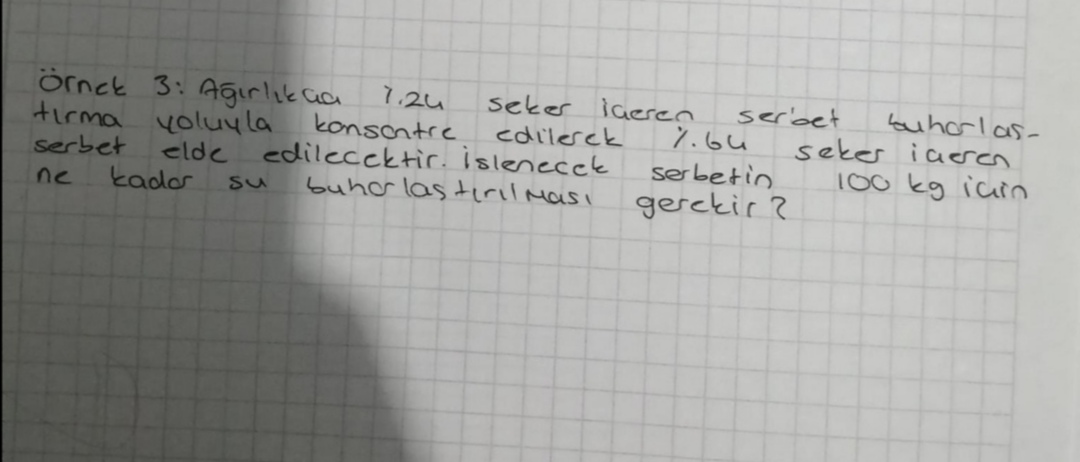 Örnek 3: Ağırlıkça %24 seker içeren serbet buharlas-
tırma yoluyla konsantre edilerek %64 seker içeren
serbet elde edilecektir. islenecek serbetin 100 kg için
ne kadar su buharlastırılması gerekir?